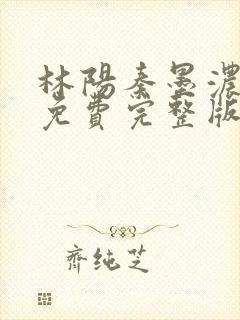 林陽秦墨濃
免費完整版
齊純芝